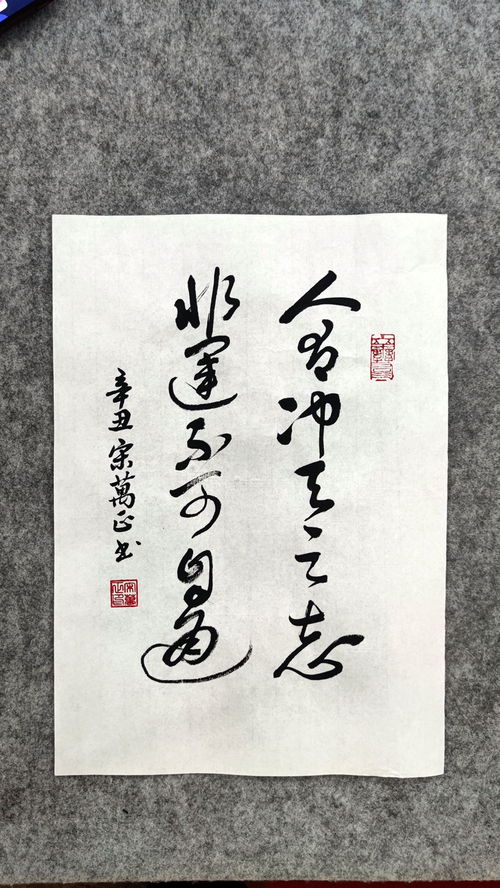 人有冲天之志
非运不可自通
辛丑宋萬正书